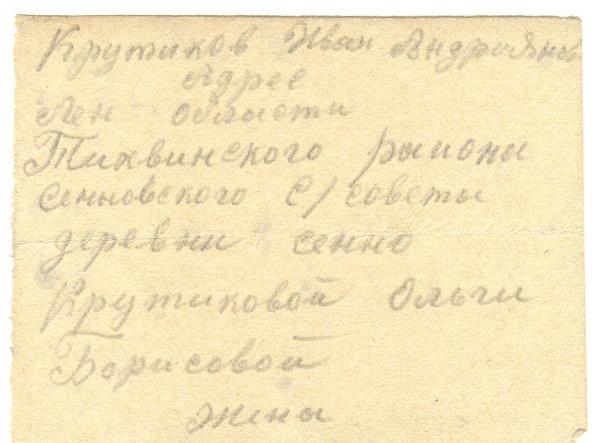 Крутиков Иван Андриянов
Адрес
Лен области
Тихвинского района
Сенновского с/совета
деревни сенно
Крутиковой Ольги
Борисовой
жена